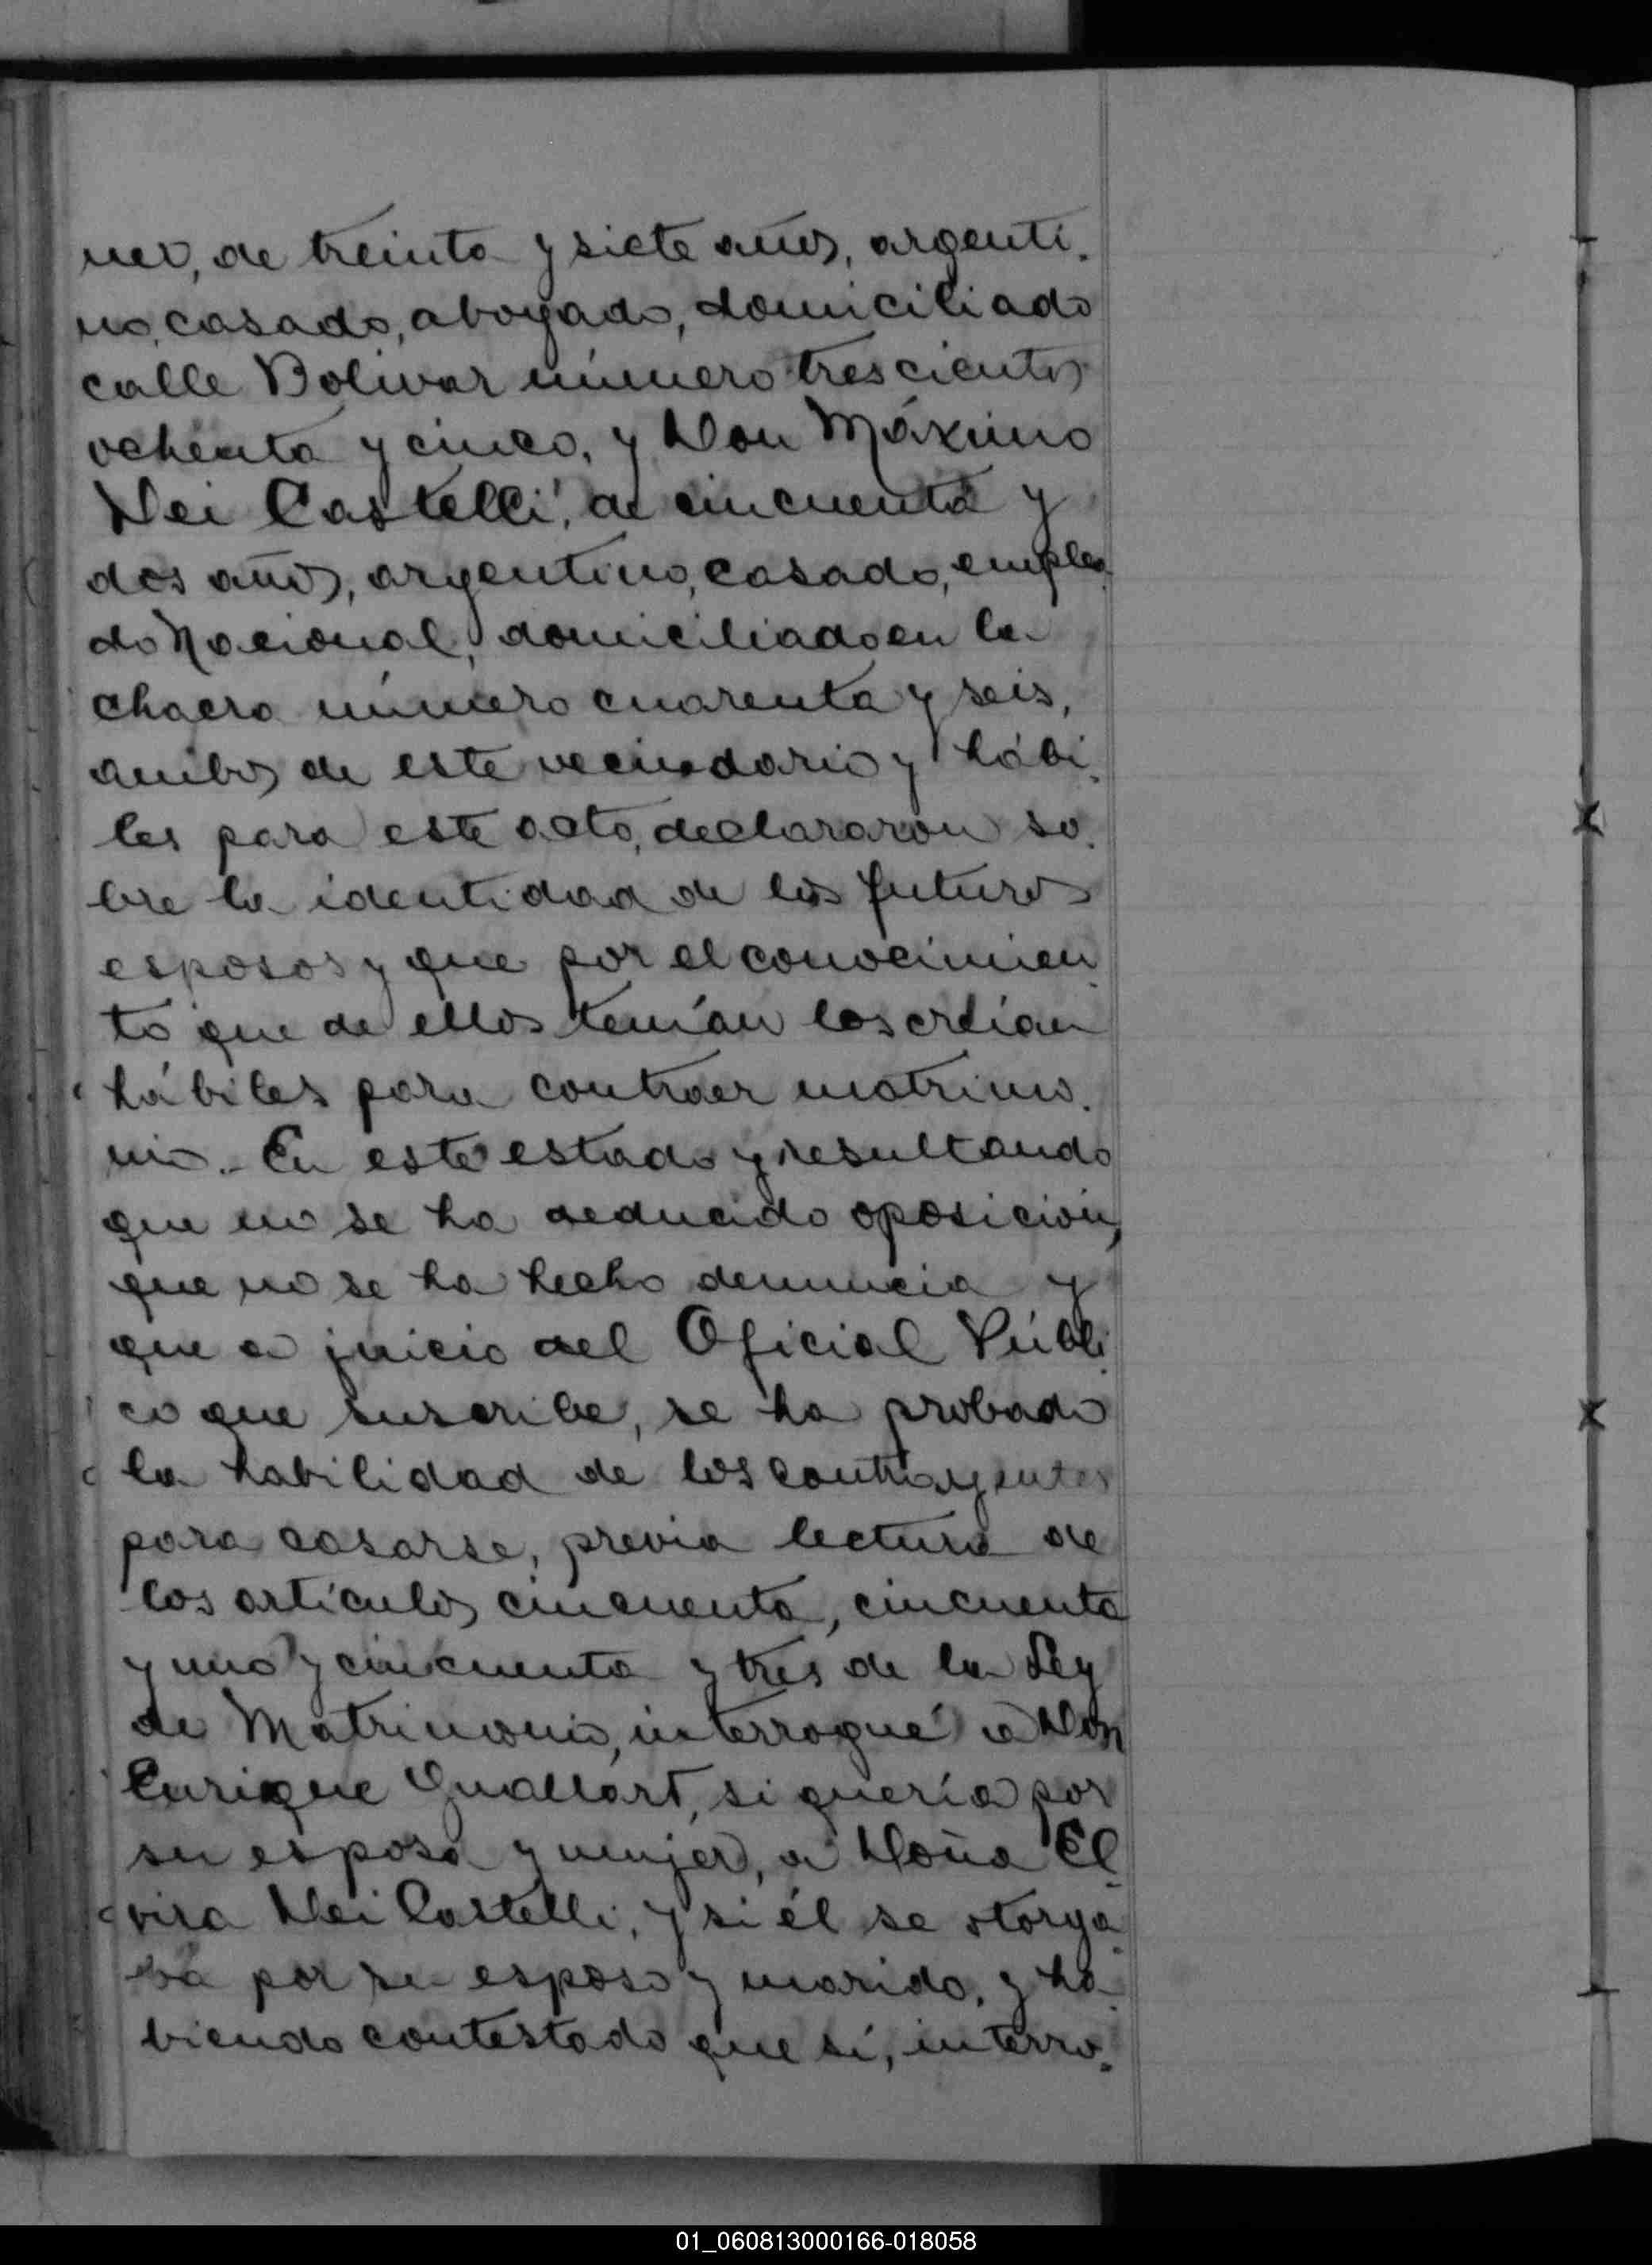 nez, de treinta y siete años, argenti-
no, casado, abogado, domiciliado
calle Bolivar número trescientos
ochenta y cinco, y Don Máximo
Dei Castelli, de cincuenta y
dos años, argentino, casado, emplea-
do Nacional, domiciliado en la
chacra número cuarenta y seis,
ambos de este vecindario y hábi-
les para este acto, declararon so-
bre la identidad de los futuros
esposos y que por el conocimien-
to que de ellos tenían los creían
hábiles para contraer matrimo-
nio.- En este estado y resultando
que no se ha deducido oposición,
que no se ha hecho denuncia y
que a juicio del Oficial Públi-
co que suscribe, se ha probado
la habilidad de los contrayentes
para casarse, previa lectura de
los artículos cincuenta, cincuenta
y uno y cincuenta y tres de la Ley
de Matrimonio, interrogué a Don
Enrique Guallart, si quería por
su esposa y mujer, a Doña El-
vira Dei Castelli, y si él se otorga-
ba por su esposo y marido, y ha-
biendo contestado que sí, interro-
01_060813000166-018058